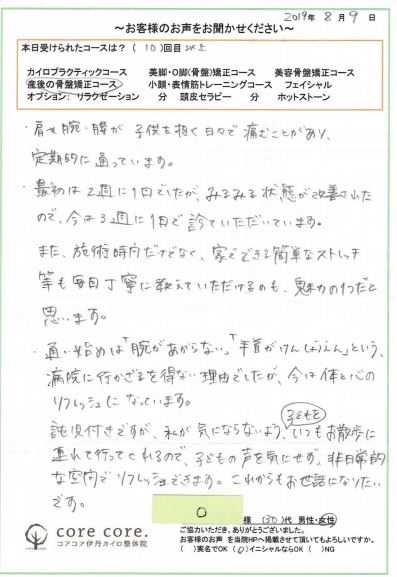 2019年 8月 9日
～お客様のお声をお聞かせください～
本日受けられたコースは？（ 10 ）回目 以上
カイロプラクティックコース　美脚・O脚(骨盤)矯正コース　美容骨盤矯正コース
産後の骨盤矯正コース　小顔・表情筋トレーニングコース　フェイシャル
オプション： リラクゼーション　分　頭皮セラピー　分　ホットストーン
・肩や腕・腰が 子供を抱く日々で 痛むことがあり、
定期的に通っています。
・最初は 2週に1回でしたが、みるみる 状態が改善された
ので、今は 3週に1回で 診ていただいています。
また、施術時間だけでなく、家でできる簡単なストレッチ
等も毎回丁寧に教えていただけるのも、魅力の1つだと
思います。
・通い始めは「腕があがらない」「手首がけんしょうえん」という、
病院に行かざるを得ない理由でしたが、今は体と心の
リフレッシュになっています。
託児付きですが、私が気にならないよう、子どもをいつもお散歩に
連れて行ってくれるので、子どもの声を気にせず、非日常的
な空間でリフレッシュできます。これからもお世話になりたい
です。
O 様（30）代 男性・女性
core core.
コアコア伊丹カイロ整体院
ご協力いただき、ありがとうございました。
お客様のお声 を当院HPへ掲載させて頂いてもよろしいですか。
（ ）実名でOK （O）イニシャルならOK （ ）NG